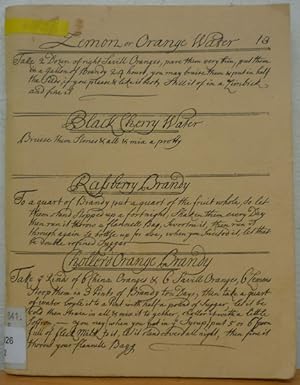 Lemon or Orange Water
Take 2 Dozen of right Savill Oranges, pare them very thin, put them
in a gallon of Brandy 24 hours, you may bruise them & put in half
the Peels if you please & like it best, Still it of in a Limbick
and fine it
Black Cherry Water
Bruise them Stones & all & mix a pretty
Rasberry Brandy
To a quart of Brandy put a quart of the fruit whole, so let
them stand Stopped up a fortnight, Shaken them every Day
then run it throw a flannell Bag, Sweeten it, then run it
through again & bottle up for use, when you Sweeten it let that
be double refined Suggar
Orange Brandy
Take 4 Rines of China Oranges & 6 Savill Oranges, 6 Lemons
Steep them in 3 Pints of Brandy two Days, then take a quart
of water boyle it to a half with half a pound of Suggar, let it be
cold then strain it all & mix it to gether, with a little
you may when you put in Syrup put 5 or 6
full of Milk to it, let it stand all night, then
through your flannell Bagg